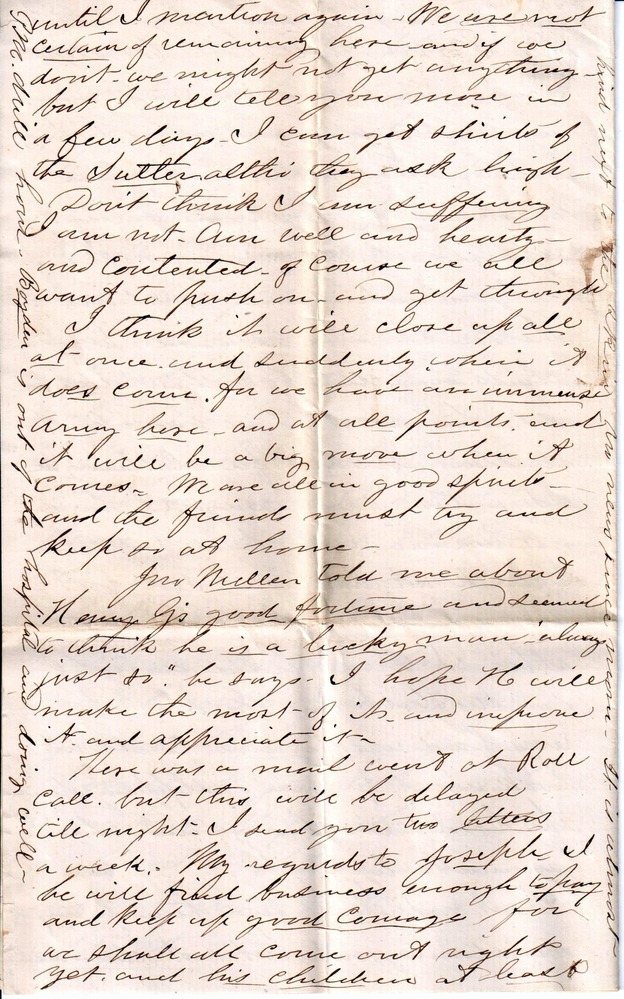 until I mention again - We are not
certain of remaining here and if we
dont - we might not get anything -
but I will tell you more in
a few days - I can get shirts of
the Sutler altho they ask high -
Don't think I am suffering
I am not - Am well and hearty -
and contented - of course we all
want to push on - and get through
I think it will close up all
at once and suddenly when it
does come. for we have an immense
army here - and at all points. and
it will be a big move when it
comes - We are all in good spirits -
and the friends must try and
keep so at home -
Jno told me about
Henry Gs good fortune and seemed
to think he is a lucky man "always
just so" he says - I hope H will
make the most of it - and improve
it and appreciate it -
There was a mail went at Roll
Call. but this will be delayed
till night - I send you two letters
a week. - My regards to Joseph &
he will find business enough to pay
and keep up good courage for
we shall all come out right
yet. and his children at least
P.M. drill hour - is out of the hospital and doing well -
It is almost